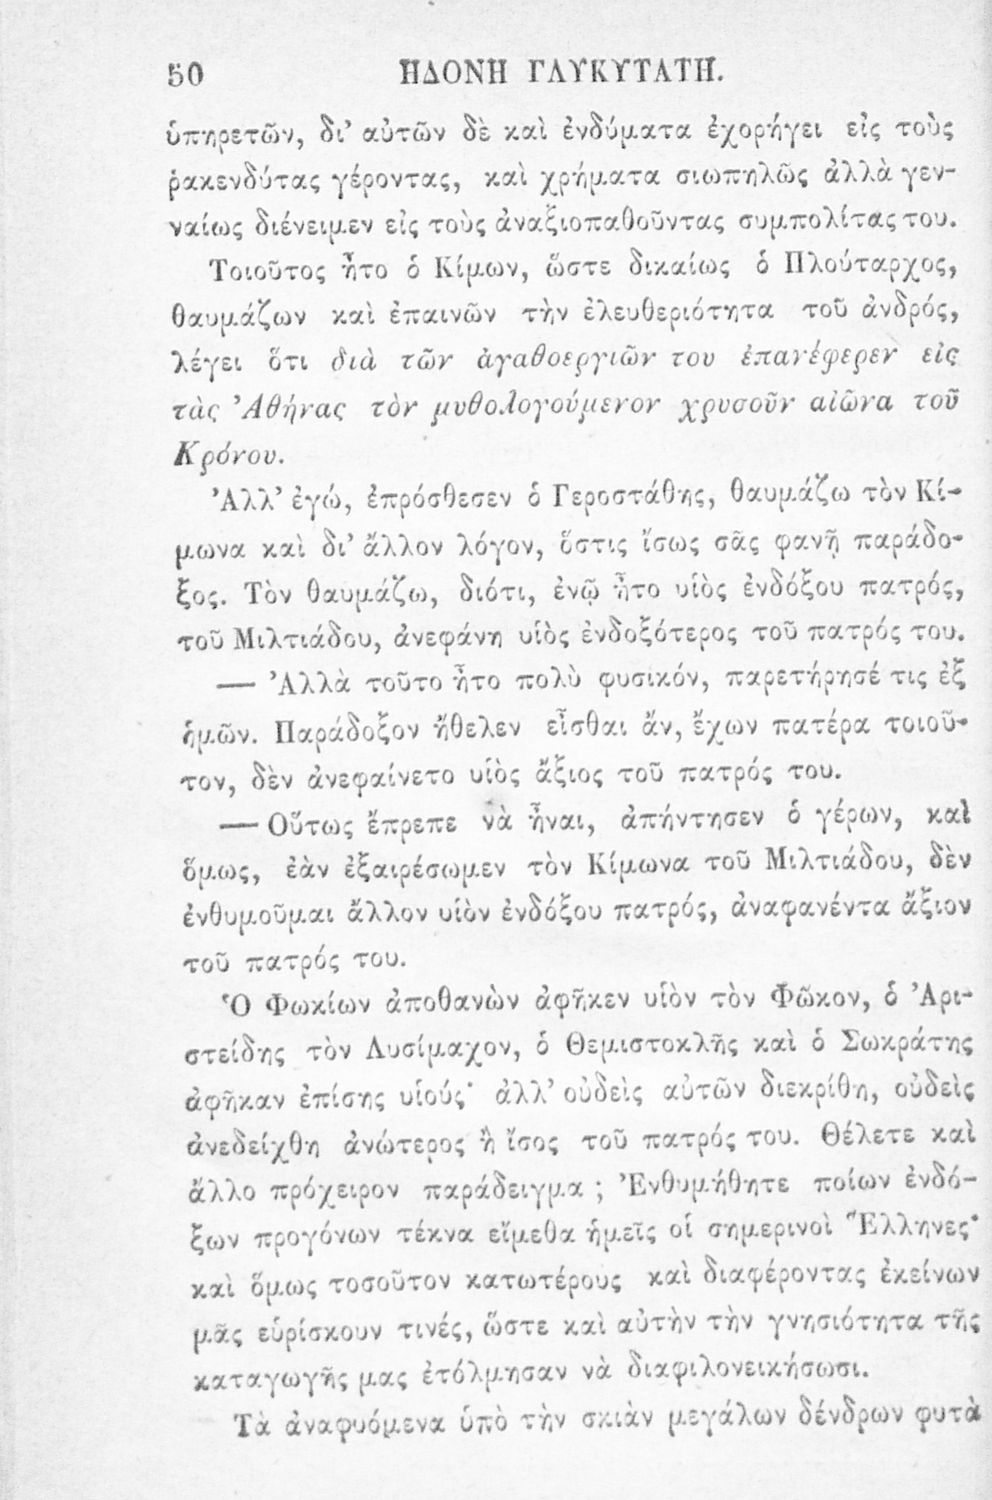 50 ΗΔΟΝΗ ΓΛΥΚΥΤΑΤΗ.
ὑπηρετῶν, δι’ αὐτῶν δὲ καὶ ἐνδύματα ἐχορήγει εἰς τοὺς
ῥακενδύτας γέροντας, καὶ χρήματα σιωπηλῶς ἀλλὰ γεν-
ναίως διένειμεν εἰς τοὺς ἀναξιοπαθοῦντας συμπολίτας του.
Τοιοῦτος ἦτο ὁ Κίμων, ὥστε δικαίως ὁ Πλούταρχος,
θαυμάζων καὶ ἐπαινῶν τὴν ἐλευθεριότητα τοῦ ἀνδρός,
λέγει ὅτι διὰ τῶν ἀγαθοεργιῶν του ἐπανέφερεν εἰς
τὰς Ἀθήνας τὸν μυθολογούμενον χρυσοῦν αἰῶνα τοῦ
Κρόνου.
Ἀλλ’ ἐγώ, ἐπρόσθεσεν ὁ Γεροστάθης, θαυμάζω τὸν Κί-
μωνα καὶ δι’ ἄλλον λόγον, ὅστις ἴσως σᾶς φανῇ παράδο-
ξος. Τὸν θαυμάζω, διότι, ἐνῷ ἦτο υἱὸς ἐνδόξου πατρός,
τοῦ Μιλτιάδου, ἀνεφάνη υἱὸς ἐνδοξότερος τοῦ πατρός του.
— Ἀλλὰ τοῦτο ἦτο πολὺ φυσικόν, παρετήρησέ τις ἐξ
ἡμῶν. Παράδοξον ἤθελεν εἶσθαι ἄν, ἔχων πατέρα τοιοῦ-
τον, δὲν ἀνεφαίνετο υἱὸς ἄξιος τοῦ πατρός του.
— Οὕτως ἔπρεπε νὰ ἦναι, ἀπήντησεν ὁ γέρων, καὶ
ὅμως, ἐὰν ἐξαιρέσωμεν τὸν Κίμωνα τοῦ Μιλτιάδου, δὲν
ἐνθυμοῦμαι ἄλλον υἱὸν ἐνδόξου πατρός, ἀναφανέντα ἄξιον
τοῦ πατρός του.
Ὁ Φωκίων ἀποθανὼν ἀφῆκεν υἱὸν τὸν Φῶκον, ὁ Ἀρι-
στείδης τὸν Λυσίμαχον, ὁ Θεμιστοκλῆς καὶ ὁ Σωκράτης
ἀφῆκαν ἐπίσης υἱούς· ἀλλ’ οὐδεὶς αὐτῶν διεκρίθη, οὐδεὶς
ἀνεδείχθη ἀνώτερος ἢ ἴσος τοῦ πατρός του. Θέλετε καὶ
ἄλλο πρόχειρον παράδειγμα ; Ἐνθυμήθητε ποίων ἐνδό-
ξων προγόνων τέκνα εἴμεθα ἡμεῖς οἱ σημερινοὶ Ἕλληνες·
καὶ ὅμως τοσοῦτον κατωτέρους καὶ διαφέροντας ἐκείνων
μᾶς εὑρίσκουν τινές, ὥστε καὶ αὐτὴν τὴν γνησιότητα τῆς
καταγωγῆς μας ἐτόλμησαν νὰ διαφιλονεικήσωσι.
Τὰ ἀναφυόμενα ὑπὸ τὴν σκιὰν μεγάλων δένδρων φυτὰ